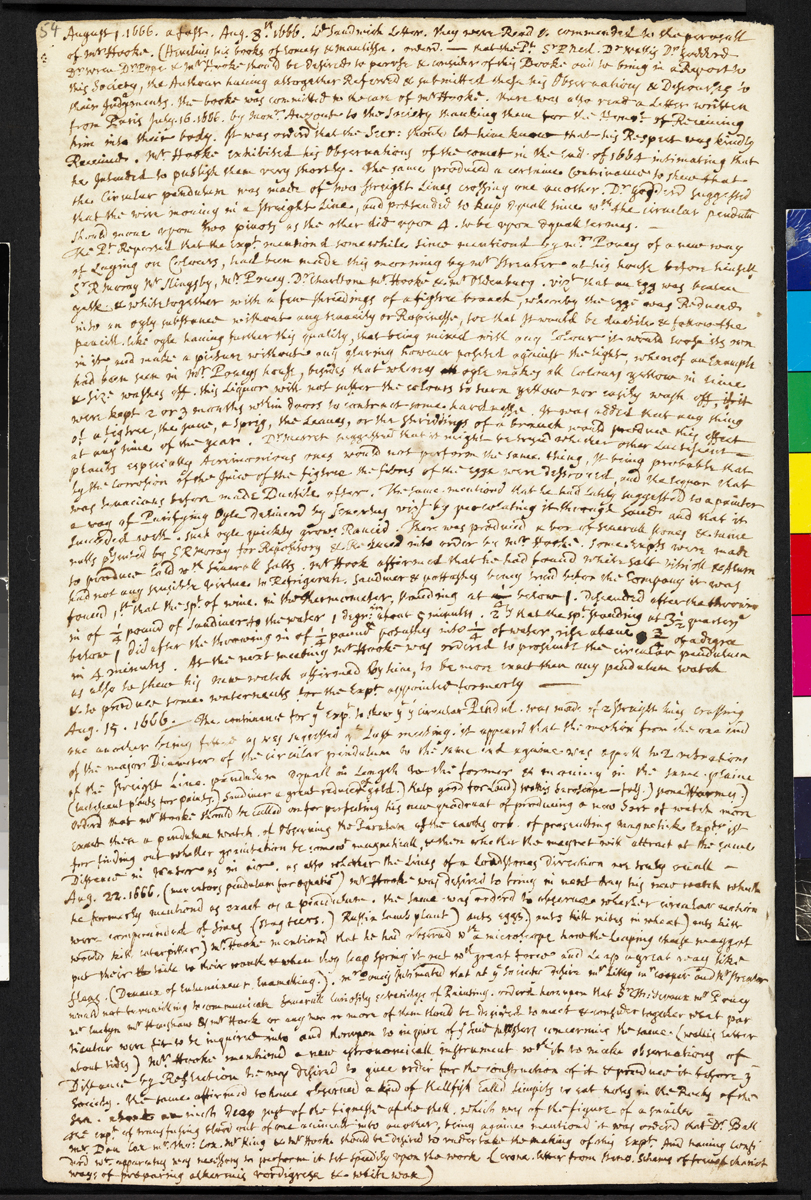 54
August 1. 1666. a fast. Aug. 8th 1666. Ld Sandwich Letter. they were Read & commended to the perusall
of mr Hooke. (Hevelius his books of comets & mantissa. orderd. — that the Pt. Sr P. Neil. Dr wallis Dr Goddard
Dr wren Dr Pope & mr Hooke should be desired to peruse & consider of this Booke and to bring in a Report to
this Society, the Authour having altogether Referred & submitted these his Observations & Discourses to
their Judgments. the booke was committed to the care of mr Hooke. there was also read a Letter written
from Paris July. 16. 1666. by monr. Auzout to the Society thanking them for the Honor of Receiving
him into their body. It was orderd that the Secr: should let him know that his Respect was kindly
Received. mr Hooke exhibited his Observations of the comet in the End of 1664 intimating that
he Intended to publish them very shortly. The same produced a certaine Contrivance to shew that
the Circular pendulum was made of two streight Lines crossing one another. Dr Goddard suggested
that the were moving in a streight Line, and pretended to keep Equall time wth the circular pendulum
should move upon two pivots as the other did upon 4. to be upon Equall termes. —
The Pt. Reported that the Expt. mentiond somewhile since mentiond by mr Povey of a new way
of Laying on Colours, had been made this morning by mr Streater at his house before himself
Sr R moray mr Slingsby, mr Povey. Dr charltone mr Hooke & mr Oldenburg. vizt that an Egg was beaten
yolk & white together with a few shreadings of a figtree branch, whereby the Egge was Reduced
into an oyly substance without any tenacity or Ropinesse, soe that It would be ductile & follow the
pencill like oyle having further this quality, that being mixed with any colour it would
in it and make a picture without any glaring however posited against the light, whereof an Example
had been seen in mr Poveys house, besides that whereas oyle makes all Colours yellow in time
& size washes off. this Liquor will not suffer the colours to turn yellow nor easily wash off, if it
were kept 2 or 3 months within doors to contract some hardnesse. It was added that any thing
of a figtree, the juice, a sprig, the Leaves, or the shreddings of a branch would produce this effect
at any time of the year. Dr merret suggested that it might be tryed whether other Lactescent —
plants especially Acrimonious ones would not perform the same thing, It being probable that
by the Corrosion of the Juice of the figtree the fibres of the Egge were destroyed, and the liquor that
was tenacious before made Ductile after. The same mentiond that he had lately suggested to a painter
a way of Purifying Oyle by vizt by percolating it through sand and that it
succeeded well. such oyle quickly grows Rancid. There was produced a box of severall stones & some
nutts prsented by Sr R moray for Repository & orderd into order by mr Hooke. Some Expts were made
to produce cold wth minerall salts. mr Hook affirmed that he had found white salt vitrioll & Alum
had not any sensible virtue to Refrigerate. Sandiver & pottashes being tryed before the Company it was
found 1st that the spt. of wine. in the Thermometer, standing at below 1. Descended after the throwing
in of 1/4 pound of Sandiver to the water 1 degr: in about 5 minutes. 2ly that the spt. standing at 3 1/2 quarters
below 1 did after the throwing in of 1/4 pound potashes into 1/4 of water, rise above of a degree
in 4 minutes. At the next meeting mr Hooke was ordered to prosecute the circular pendulum
as also to shew his new watch affirmed by him, to be more exact than any pendulum watch
& to produce some watermeats for the Expt appointed formerly —
Aug. 15. 1666. — The contrivance for ye Expt. to shew yt ye circular Pendul. was made of 2 streight lines crossing
one another being tryed as was suggested ye Last meeting. it appeard that the motion from the one End
of the major Diameter of the circular pendulum to the same End againe was equall to 2 vibrations
of the streight Line. pendulum Equall in Length to the former & moving in the same plaine
(Lactescent plants for paints.) Sandiver a great reducer of gold.) Kelp good for Land) wallis baroscope —
Orderd that mr Hooke should be called on for perfecting his new quadrant of producing a new sort of watch more
Exact then a pendulum watch. of observing the Parallax of the Earths orb. of prosecuting magnetick Expts. 1st
for finding out whether gravitation be somew. magneticall, & then whether the magnet will attract at the same
Distance in water as in aire. as also whether the Lines of a Loadstones Direction are truly ovall —
Aug. 22. 1666. (mercators pendulum for equatio) mr Hooke was desired to bring in next day his new watch which
he formerly mentiond as exact as a pendulum. the same was orderd to observe whether circular motion
were compounded of Lines (Stag teeres.) Russia Lambs plant) ants Eggs) ants kill mites in wheat) ants kill
would kill caterpiller) mr Hooke mentiond that he had observd wth a microscope how the leaping cheese maggot
put their tails to their mouth & when they leap spring it out wth great force and Leap a great way like
Fleas. mr Povey Intimated that at ye Societies desire mr Lilly mr Cooper and mr Streater
would not be unwilling to communicate severall curiositys of Painting. orderd hereupon that mr Povey
mr Euelyn mr Henshaw & mr Hook or any two or more of them should be desired to meet & consider together what par
ticulars were fit to be inquired into and thereupon to inquire of ye sd persons concerning the same. (wallis Letter
about tides) mr Hooke mentiond a new astronomicall instrument wth it to make observations of
Distances by Reflection he was desired to give order for the construction of it & produce it before ye
Society. The same affirmed to have observed a kind of shellfish called Limpits to eat holes in the Rocks of the
sea. about an inch deep just of the bignesse of the shell. which was of the figure of a
The expt. of transfusing blood out of one animal into another, being againe mentiond it was orderd that Dr. Ball
mr. Dan Cox mr. Tho: Cox. mr King & mr Hooke should be desired to undertake the making of this Expt. And having consi
derd wt. apparatus was necessary to perform it set speedily upon the work
ways of preparing alkermis verdigrese & white wax)